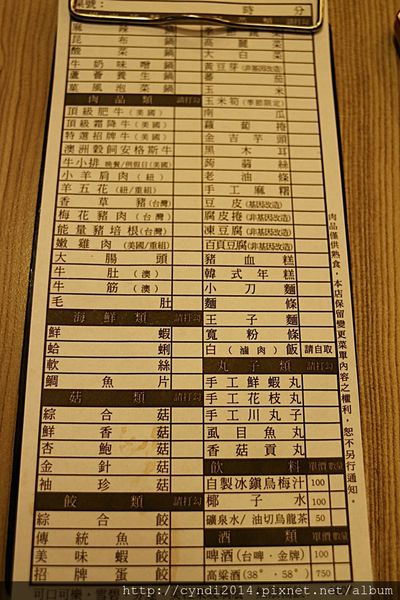 桌號: 時 分
麻辣鍋
昆布鍋
酸菜鍋
牛奶味噌鍋
蘆薈養生鍋
菓風泡菜鍋
肉品類 請打勾
頂級肥牛(美國)
頂級霜降牛(美國)
特選招牌牛(美國)
澳洲穀飼安格斯牛
牛小排 晚餐/例假日(美國)
小羊肩肉(紐)
羊五花(紐/重組)
香草豬(台灣)
梅花豬肉(台灣)
能量豬培根(台灣)
嫩雞肉(美國/重組)
大腸頭
牛肚(澳)
牛筋(澳)
毛肚
海鮮類 請打勾
鮮蝦
蛤蜊
軟絲
鯛魚片
菇類 請打勾
綜合菇
鮮香菇
杏鮑菇
金針菇
袖珍菇
餃類 請打勾
綜合餃
傳統魚餃
美味蝦餃
招牌蛋餃
季節時蔬
高麗菜
大白菜
黃豆芽(非基因改造)
番茄
玉米
玉米筍(季節限定)
南瓜
蘿蔔捲
金吉芋頭
黑木耳
蒟蒻絲
老油條
手工麻糬
豆皮(非基因改造)
腐皮捲(非基因改造)
凍豆腐(非基因改造)
百頁豆腐(非基因改造)
豬血糕
韓式年糕
小刀麵
麵條
王子麵
寬粉條
白(滷肉)飯 請自取
丸子類 請打勾
手工鮮蝦丸
手工花枝丸
手工川丸子
虱目魚丸
香菇貢丸
飲料 單價 數量
自製冰鎮烏梅汁 100
椰子水 100
礦泉水/油切烏龍茶 50
酒類 單價 數量
啤酒(台啤·金牌) 100
高粱酒(38°·58°) 750
肉品僅供熟食,本店保留變更菜單內容之權利,恕不另行通知。
http://cyndi2014.pixnet.net/album